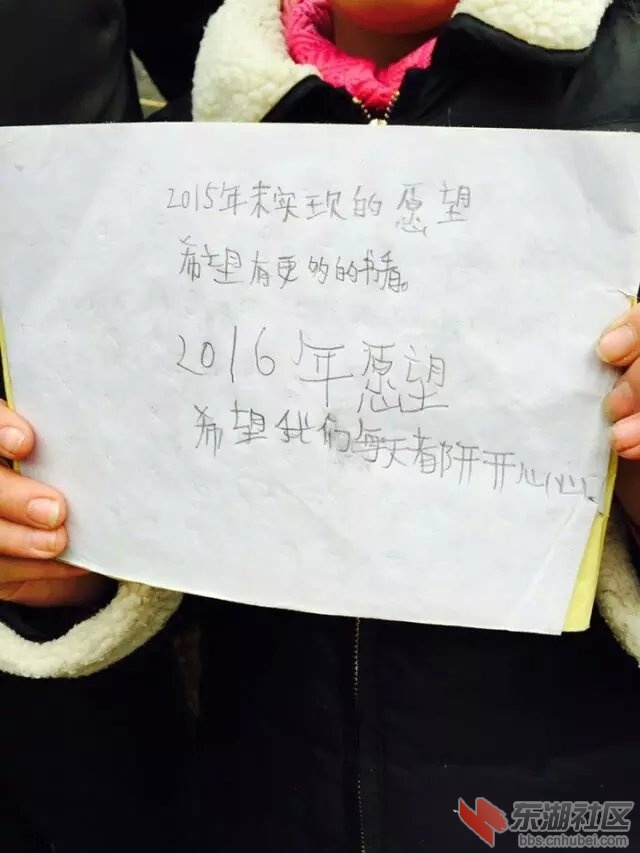 2015年未实现的愿望
希望有更多的书看。
2016年愿望
希望我们每天都开开心心
东湖社区
bbs.cnhubei.com